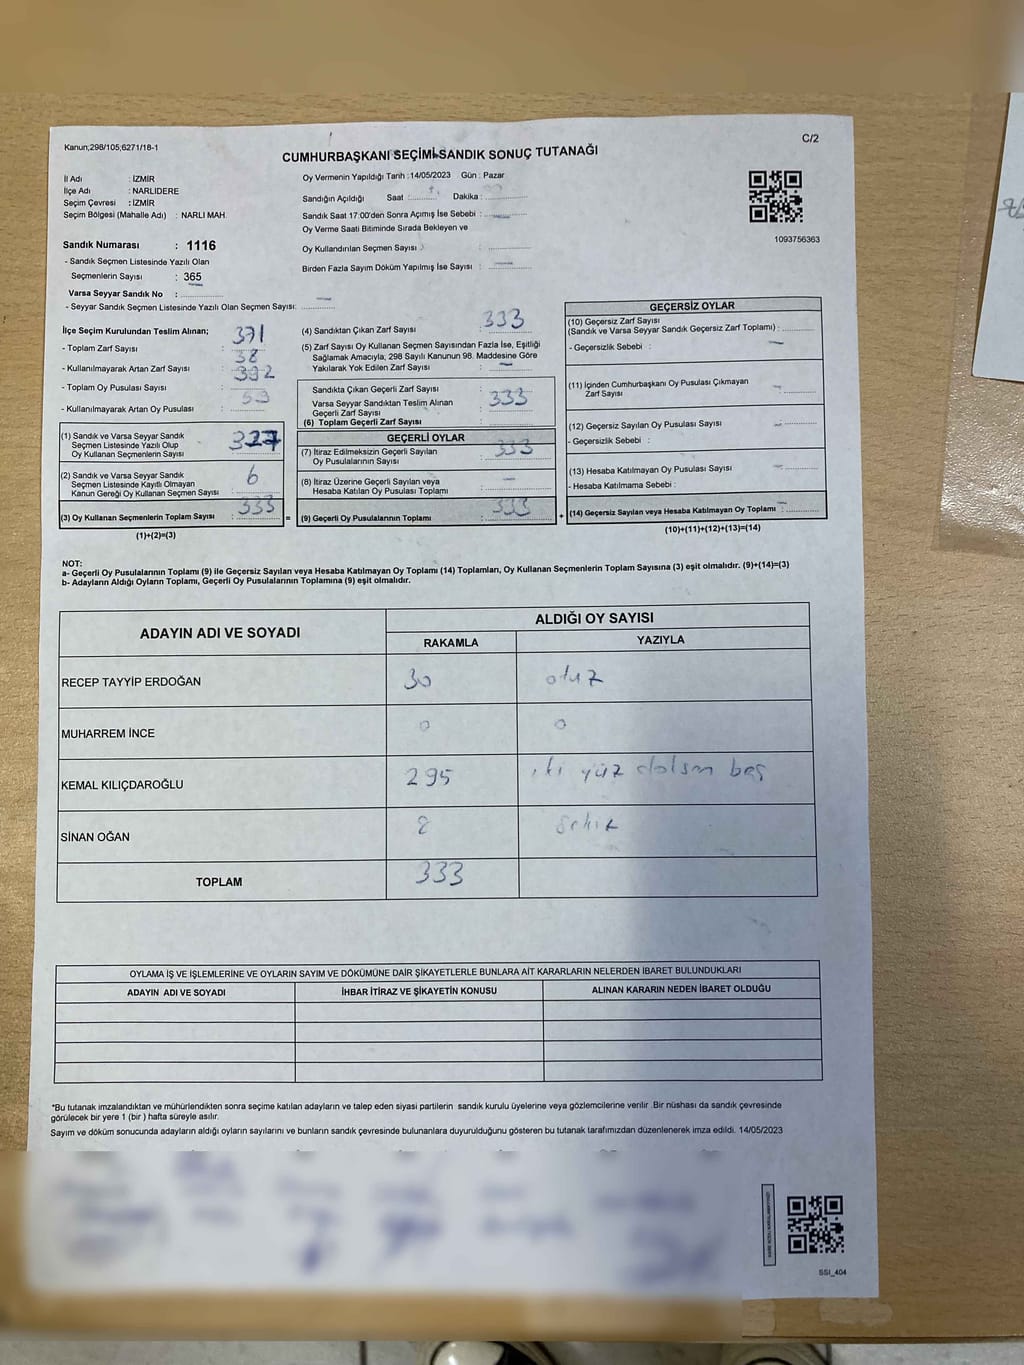 Kanun;298/105;6271/18-1
C/2
CUMHURBAŞKANI SEÇİMİ SANDIK SONUÇ TUTANAĞI
İl Adı : İZMİR
İlçe Adı : NARLIDERE
Seçim Çevresi : İZMİR
Seçim Bölgesi (Mahalle Adı) : NARLI MAH.
Sandık Numarası : 1116
- Sandık Seçmen Listesinde Yazılı Olan
Seçmenlerin Sayısı : 365
Varsa Seyyar Sandık No :
- Seyyar Sandık Seçmen Listesinde Yazılı Olan Seçmen Sayısı:
Oy Vermenin Yapıldığı Tarih :14/05/2023 Gün : Pazar
Sandığın Açıldığı Saat : Dakika :
Sandık Saat 17:00'den Sonra Açımış İse Sebebi :
Oy Verme Saati Bitiminde Sırada Bekleyen ve
Oy Kullandırılan Seçmen Sayısı :
Birden Fazla Sayım Döküm Yapılmış İse Sayısı :
1093756363
İlçe Seçim Kurulundan Teslim Alınan;
- Toplam Zarf Sayısı : 371
- Kullanılmayarak Artan Zarf Sayısı : 38
- Toplam Oy Pusulası Sayısı : 392
- Kullanılmayarak Artan Oy Pusulası : 59
(1) Sandık ve Varsa Seyyar Sandık
Seçmen Listesinde Yazılı Olup
Oy Kullanan Seçmenlerin Sayısı : 327
(2) Sandık ve Varsa Seyyar Sandık
Seçmen Listesinde Kayıtlı Olmayan
Kanun Gereği Oy Kullanan Seçmen Sayısı : 6
(3) Oy Kullanan Seçmenlerin Toplam Sayısı : 333
(1)+(2)=(3)
(4) Sandıktan Çıkan Zarf Sayısı : 333
(5) Zarf Sayısı Oy Kullanan Seçmen Sayısından Fazla İse, Eşitliği
Sağlamak Amacıyla; 298 Sayılı Kanunun 98. Maddesine Göre
Yakılarak Yok Edilen Zarf Sayısı :
Sandıkta Çıkan Geçerli Zarf Sayısı
Varsa Seyyar Sandıktan Teslim Alınan
Geçerli Zarf Sayısı : 333
(6) Toplam Geçerli Zarf Sayısı :
GEÇERLİ OYLAR
(7) İtiraz Edilmeksizin Geçerli Sayılan
Oy Pusulalarının Sayısı : 333
(8) İtiraz Üzerine Geçerli Sayılan veya
Hesaba Katılan Oy Pusulası Toplamı :
= (9) Geçerli Oy Pusulalarının Toplamı : 333
GEÇERSİZ OYLAR
(10) Geçersiz Zarf Sayısı
(Sandık ve Varsa Seyyar Sandık Geçersiz Zarf Toplamı) :
- Geçersizlik Sebebi :
(11) İçinden Cumhurbaşkanı Oy Pusulası Çıkmayan
Zarf Sayısı
(12) Geçersiz Sayılan Oy Pusulası Sayısı
- Geçersizlik Sebebi :
(13) Hesaba Katılmayan Oy Pusulası Sayısı
- Hesaba Katılmama Sebebi :
+ (14) Geçersiz Sayılan veya Hesaba Katılmayan Oy Toplamı :
(10)+(11)+(12)+(13)=(14)
NOT:
a- Geçerli Oy Pusulalarının Toplamı (9) ile Geçersiz Sayılan veya Hesaba Katılmayan Oy Toplamı (14) Toplamları, Oy Kullanan Seçmenlerin Toplam Sayısına (3) eşit olmalıdır. (9)+(14)=(3)
b- Adayların Aldığı Oyların Toplamı, Geçerli Oy Pusulalarının Toplamına (9) eşit olmalıdır.
ADAYIN ADI VE SOYADI
ALDIĞI OY SAYISI
RAKAMLA YAZIYLA
RECEP TAYYİP ERDOĞAN 30 otuz
MUHARREM İNCE 0 0
KEMAL KILIÇDAROĞLU 295 iki yüz doksan beş
SİNAN OĞAN 8 sekiz
TOPLAM 333
OYLAMA İŞ VE İŞLEMLERİNE VE OYLARIN SAYIM VE DÖKÜMÜNE DAİR ŞİKAYETLERLE BUNLARA AİT KARARLARIN NELERDEN İBARET BULUNDUKLARI
ADAYIN ADI VE SOYADI İHBAR İTİRAZ VE ŞİKAYETİN KONUSU ALINAN KARARIN NEDEN İBARET OLDUĞU
*Bu tutanak imzalandıktan ve mühürlendikten sonra seçime katılan adayların ve talep eden siyasi partilerin sandık kurulu üyelerine veya gözlemcilerine verilir .Bir nüshası da sandık çevresinde
görülecek bir yere 1 (bir ) hafta süreyle asılır.
Sayım ve döküm sonucunda adayların aldığı oyların sayılarını ve bunların sandık çevresinde bulunanlara duyurulduğunu gösteren bu tutanak tarafımızdan düzenlenerek imza edildi. 14/05/2023
SSI_404